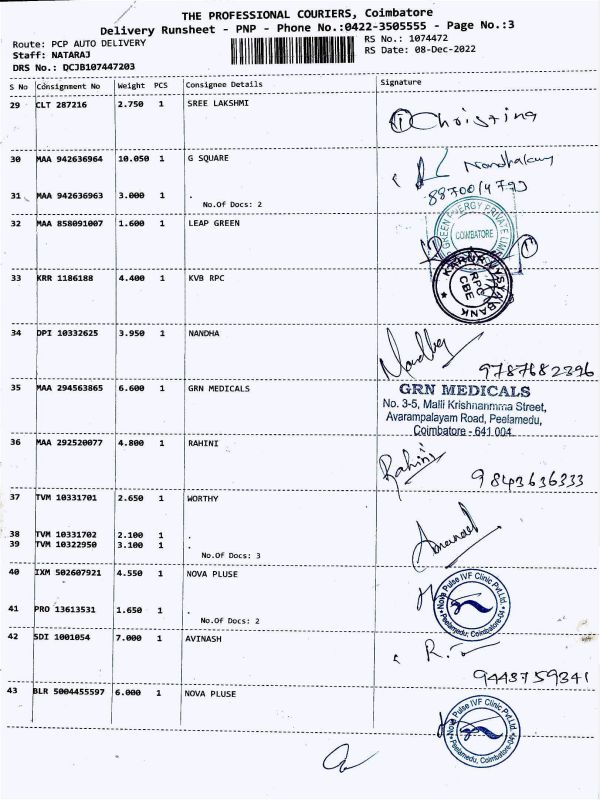 THE PROFESSIONAL COURIERS, Coimbatore
Delivery Runsheet - PNP - Phone No.:0422-3505555 - Page No.:3
Route: PCP AUTO DELIVERY
RS No.: 1074472
Staff: NATARAJ
RS Date: 08-Dec-2022
DRS No.: DCJB107447203
S No Consignment No Weight PCS Consignee Details Signature
29 CLT 287216 2.750 1 SREE LAKSHMI
① Christina
30 MAA 942636964 10.050 1 G SQUARE
31 MAA 942636963 3.000 1 .
No.Of Docs: 2
32 MAA 858091007 1.600 1 LEAP GREEN
GREEN ENERGY PRIVATE LIMITED
COIMBATORE
①
33 KRR 1186188 4.400 1 KVB RPC
KARUR VYSYA BANK
RPC
CBE
34 DPI 10332625 3.950 1 NANDHA
9787682396
35 MAA 294563865 6.600 1 GRN MEDICALS
GRN MEDICALS
No. 3-5, Malli Krishnanmma Street,
Avarampalayam Road, Peelamedu,
Coimbatore - 641 004.
36 MAA 292520077 4.800 1 RAHINI
Rahini
9843636333
37 TVM 10331701 2.650 1 WORTHY
38 TVM 10331702 2.100 1 .
39 TVM 10322950 3.100 1 .
No.Of Docs: 3
40 IXM 502607921 4.550 1 NOVA PLUSE
Nova Pulse IVF Clinic Pvt.Ltd
Peelamedu, Coimbatore-04
41 PRO 13613531 1.650 1 .
No.Of Docs: 2
42 SDI 1001054 7.000 1 AVINASH
9443759341
43 BLR 5004455597 6.000 1 NOVA PLUSE
Nova Pulse IVF Clinic Pvt.Ltd
Peelamedu, Coimbatore-04